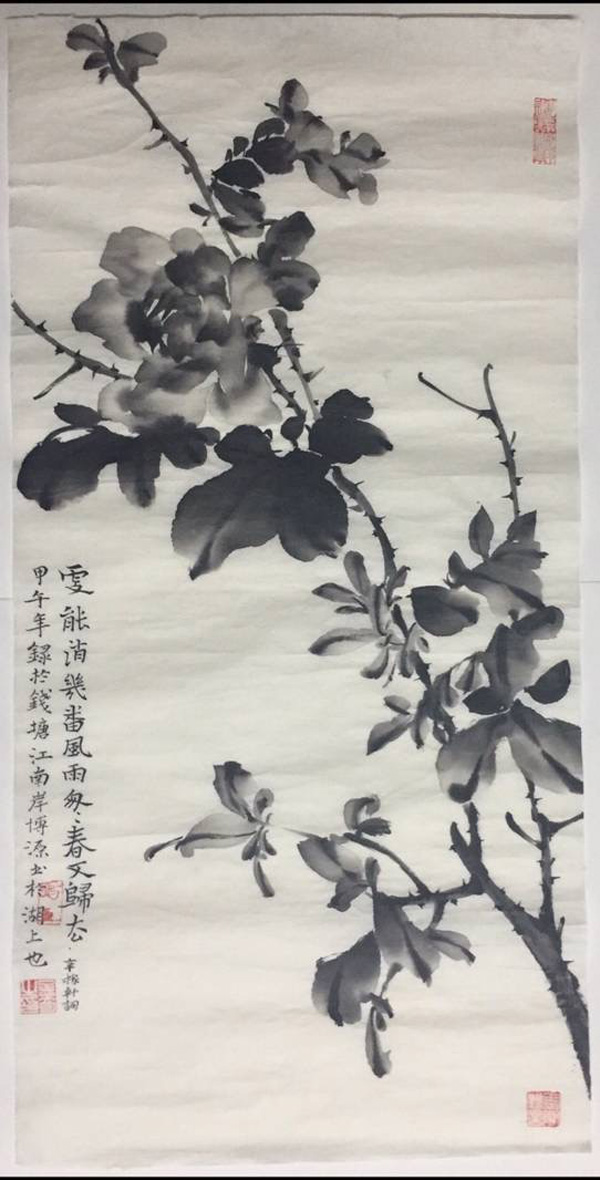 更能消幾番風雨匆匆春又歸去
辛稼軒詞
甲午年録於錢塘江南岸博源書於湖上也